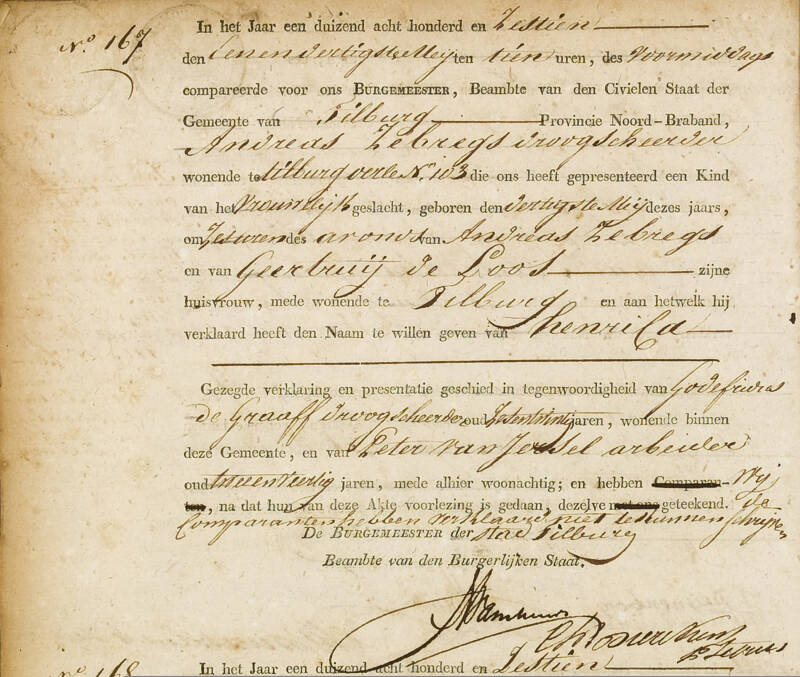 No. 167
In het Jaar een duizend acht honderd en Zestien
den Eenendertigste Meij ten tien uren, des voormiddags
compareerde voor ons BURGEMEESTER, Beambte van den Civielen Staat der
Gemeente van Tilburg Provincie Noord-Braband,
Andreas Zebregs droogscheerder
wonende te tilburg No. 103 die ons heeft gepresenteerd een Kind
van het vrouwelijk geslacht, geboren den dertigste Meij dezes jaars,
om Zes uren des avonds van Andreas Zebregs
en van Geertruij de Loos zijne
huisvrouw, mede wonende te Tilburg en aan hetwelk hij
verklaard heeft den Naam te willen geven van henrica
Gezegde verklaring en presentatie geschied in tegenwoordigheid van Godefridus
de Graaff droogscheerder oud jaren, wonende binnen
deze Gemeente, en van Peter van Iersel arbeider
oud tweeenveertig jaren, mede alhier woonachtig; en hebben Comparan- Wij
ten, na dat hun van deze Akte voorlezing is gedaan, dezelve met ons geteekend. de
Comparanten hebben verklaard niet te kunnen schrijven
DE BURGEMEESTER der stad Tilburg
Beambte van den Burgerlijken Staat.
No. 168
In het Jaar een duizend acht honderd en Zestien